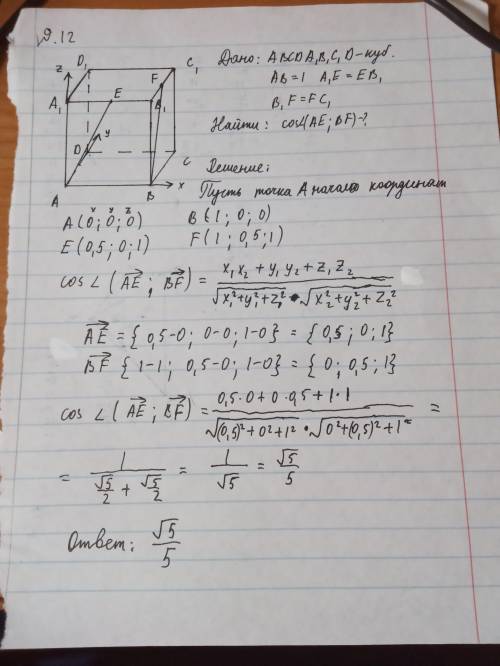 9.12
Дано: ABCDA₁B₁C₁D - куб.
AB=1 A₁E = EB₁
B₁F = FC₁
Найти: cos∠(AE; BF)-?
Решение:
Пусть точка A начало координат
z D₁ C₁
F
A₁ E B₁
y
D C
A B x
x y z
A(0; 0; 0) B(1; 0; 0)
E(0,5; 0; 1) F(1; 0,5; 1)
cos∠(AE→; BF→) = (x₁x₂ + y₁y₂ + z₁z₂)/(√(x₁²+y₁²+z₁²) · √(x₂²+y₂²+z₂²))
AE→ = {0,5-0; 0-0; 1-0} = {0,5; 0; 1}
BF→ {1-1; 0,5-0; 1-0} = {0; 0,5; 1}
cos∠(AE→; BF→) = (0,5·0+0·0,5+1·1)/(√((0,5)²+0²+1²) · √(0²+(0,5)²+1²)) =
= 1/(√5/2 + √5/2) = 1/√5 = √5/5
Ответ: √5/5